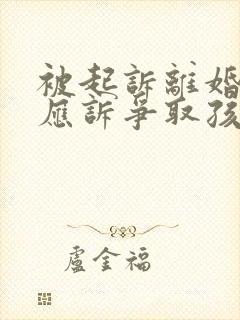 被起訴離婚
應訴爭取孩
盧金福